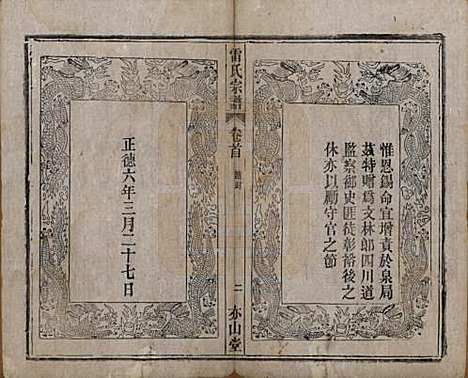 惟恩錫命宜增賁於泉局
茲特贈爲文林郎四川道
監察御史匪徒彰裕後之
休亦以勵守官之節
雷氏宗譜
卷首
二
亦山堂
正德六年三月二十七日